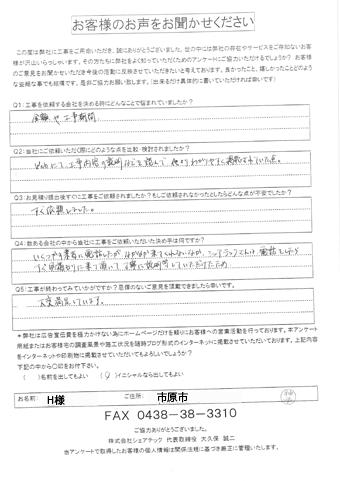 お客様のお声をお聞かせください
この度は弊社に工事をご用命いただき、誠にありがとうございました。世の中には弊社の存在やサービスをご存知ないお客
様が沢山いらっしゃいます。その方たちに弊社をよく知っていただくためのアンケートにご協力いただけるでしょうか？お客様
のご意見をお聞かせいただき今後の活動に反映させていただきたいと考えております。良かったこと、嬉しかったことどのよう
な些細な事でも結構です。是非ご協力お願い致します。（出来るだけ具体的に書いていただければ幸いです）
Q1：工事を依頼する会社を決める時にどんなことで悩まれていましたか？
金額や工事期間
Q2：当社にご依頼いただく際にどのような点を比較・検討されましたか？
Q3：お見積り提出後すぐに工事をご依頼されましたか？もしご依頼されなかったとしたらどんな点が不安でしたか？
すぐ依頼しました。
Q4：数ある会社の中から当社に工事をご依頼いただいた決め手は何ですか？
Q5：工事が終わってみていかがですか？忌憚のないご意見を頂戴できましたら幸いです。
大変満足しています。
＊弊社は広告宣伝費を極力かけない為にホームページだけを頼りにお客様への営業活動を行っております。本アンケート
用紙またはお客様宅の調査風景や施工状況を随時ブログ形式のインターネットに掲載させていただいております。上記内容
をインターネットや印刷物に掲載させていただいてもよろしいでしょうか？
下記の中から〇印をお付下さい。
（　）名前を出してもよい　（○）イニシャルなら出してもよい
お名前： H様 ご住所： 市原市
FAX 0438－38－3310
ご協力ありがとうございました。
株式会社シェアテック 代表取締役 大久保 誠二
当アンケートで取得したお客様の個人情報は関係法規に基づき厳正に管理いたします。